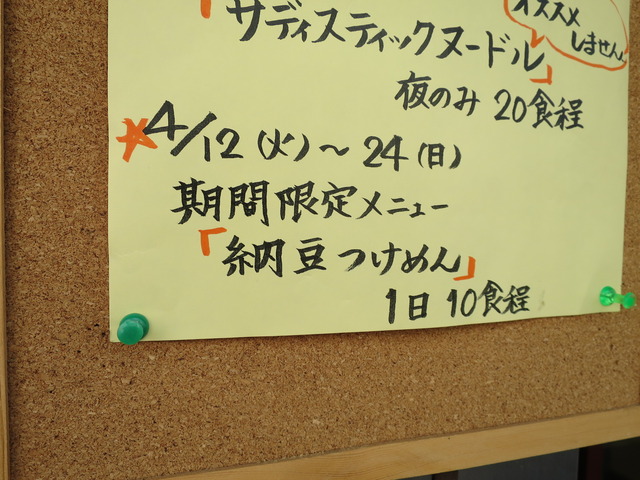 オススメ
しません
「サディスティックヌードル」
夜のみ 20食程
★4/12(火)〜24(日)
期間限定メニュー
「納豆つけめん」
1日 10食程